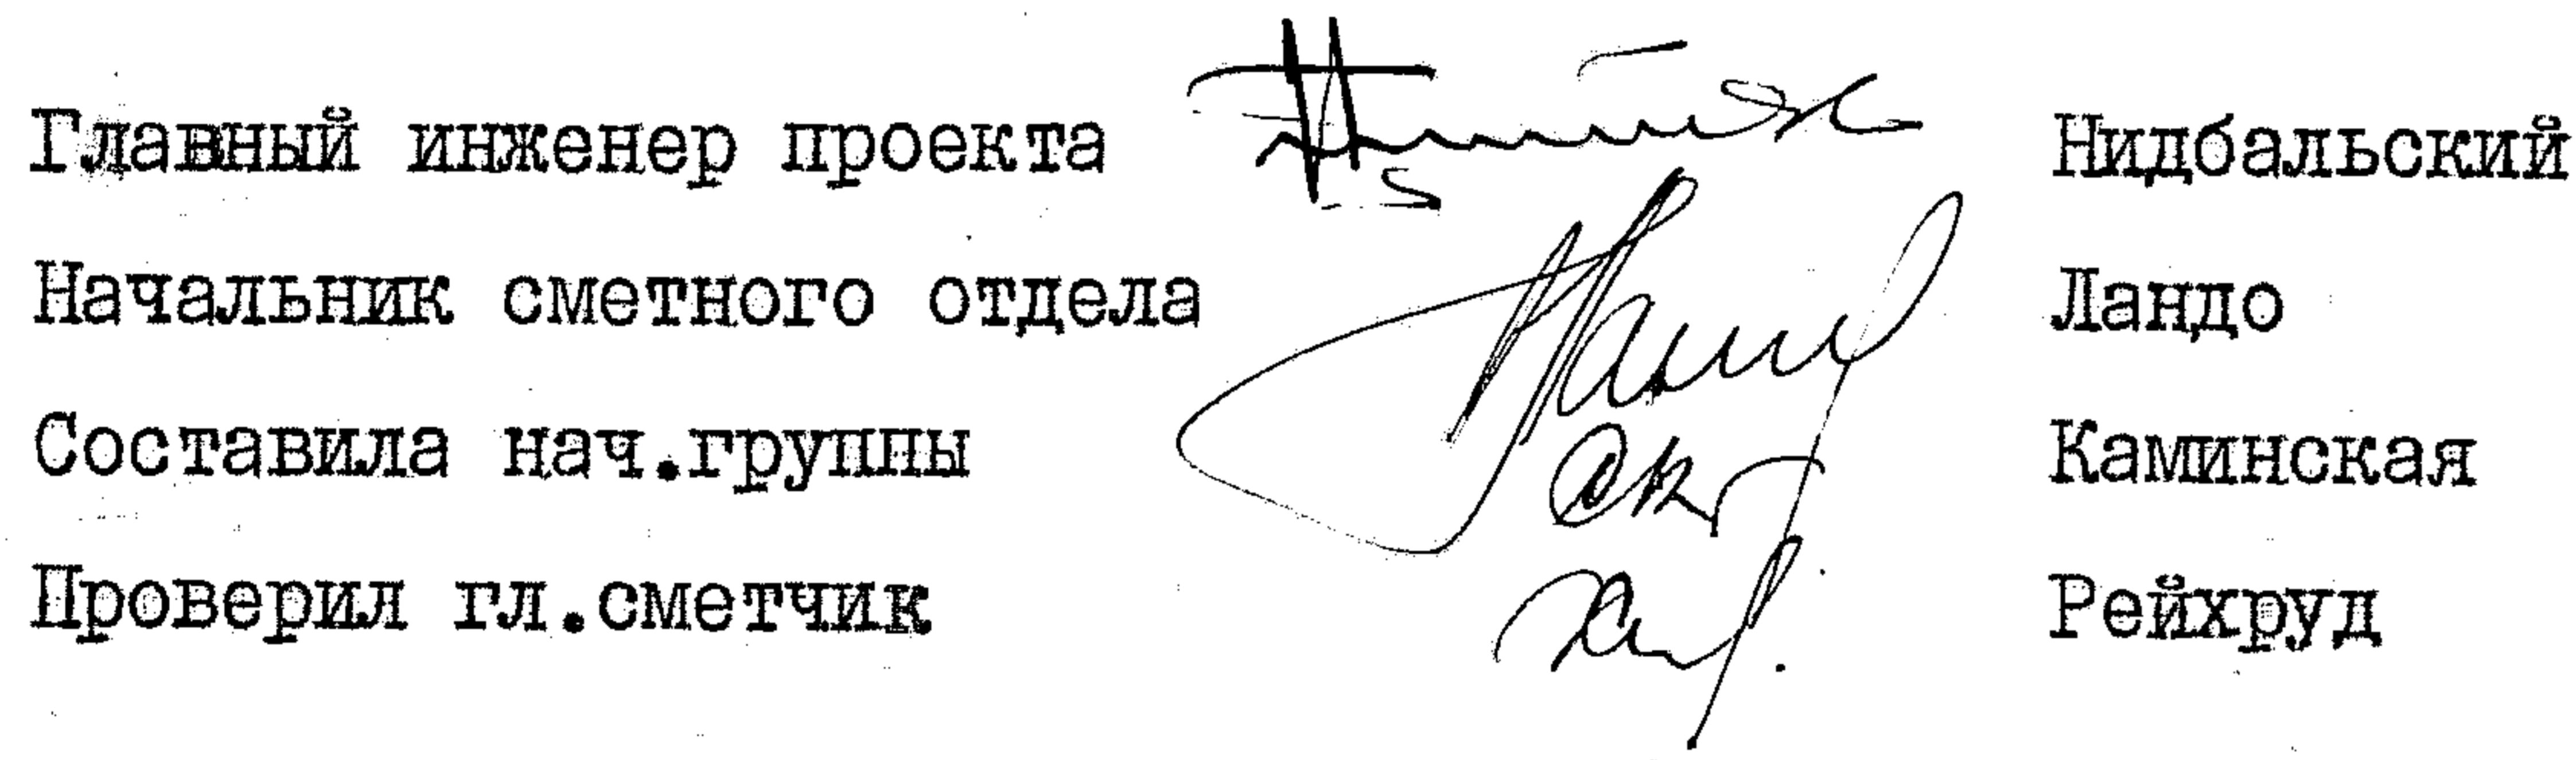 Главный инженер проекта Нидбальский
Начальник сметного отдела Ландо
Составила нач.группы Каминская
Проверил гл.сметчик Рейхруд